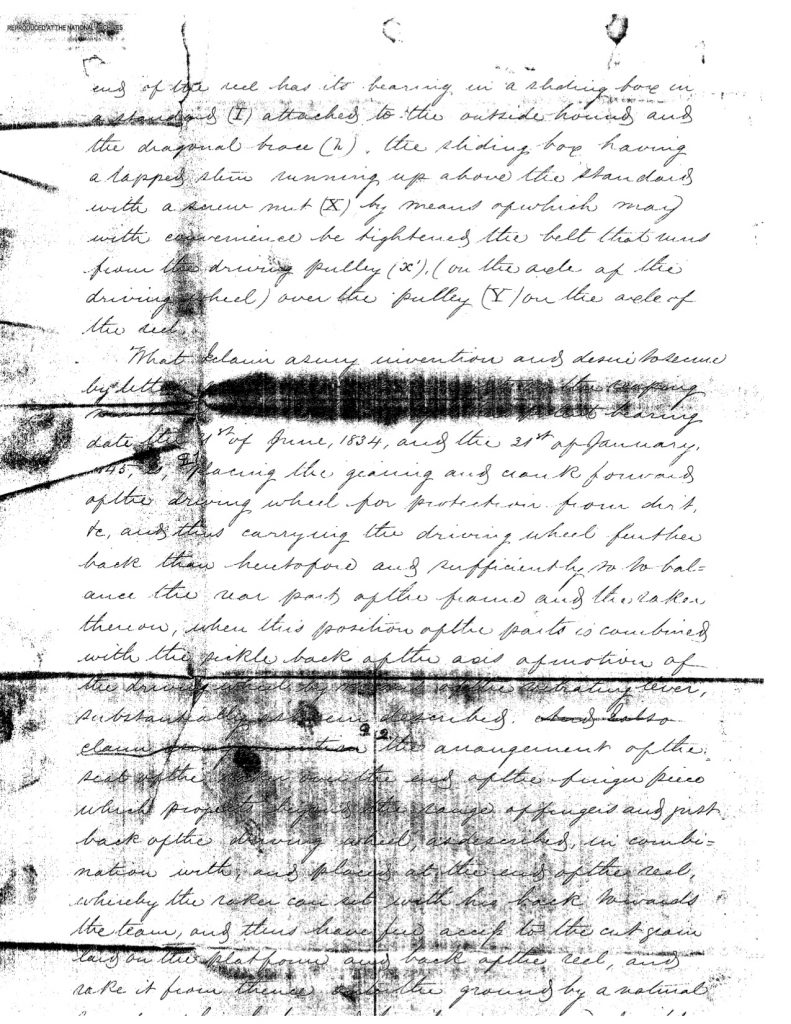 REPRODUCED AT THE NATIONAL ARCHIVES
end of the reel has its bearing in a sliding box in
a standard (I) attached to the outside hound and
the diagonal brace (h), the sliding box having
a tapped stem running up above the standard
with a screw nut (X) by means of which may
with convenience be tightened the belt that runs
from the driving pulley (x'), (on the axle of the
driving wheel) over the pulley (Y) on the axle of
the reel.
What I claim as my invention and desire to secure
by letters the reaping
bearing
date the 21st of June, 1834, and the 21st of January,
placing the gearing and crank forward
of the driving wheel for protection from dirt,
&c, and thus carrying the driving wheel further
back than heretofore and sufficiently so to bal=
ance the rear part of the frame and the raker
thereon, when this position of the parts is combined
with the sickle back of the axis of motion of
the driving wheel by means of the vibrating lever,
substantially as herein described. And I also
claim as my invention 2 2. the arrangement of the
seat of the raker over the end of the finger piece
which projects beyond the range of fingers and just
back of the driving wheel, as described, in combi=
nation with, and placed at, the end of the reel,
whereby the raker can sit with his back towards
the team, and thus have free access to the cut grain
laid on the platform and back of the reel, and
rake it from thence onto the ground by a natural